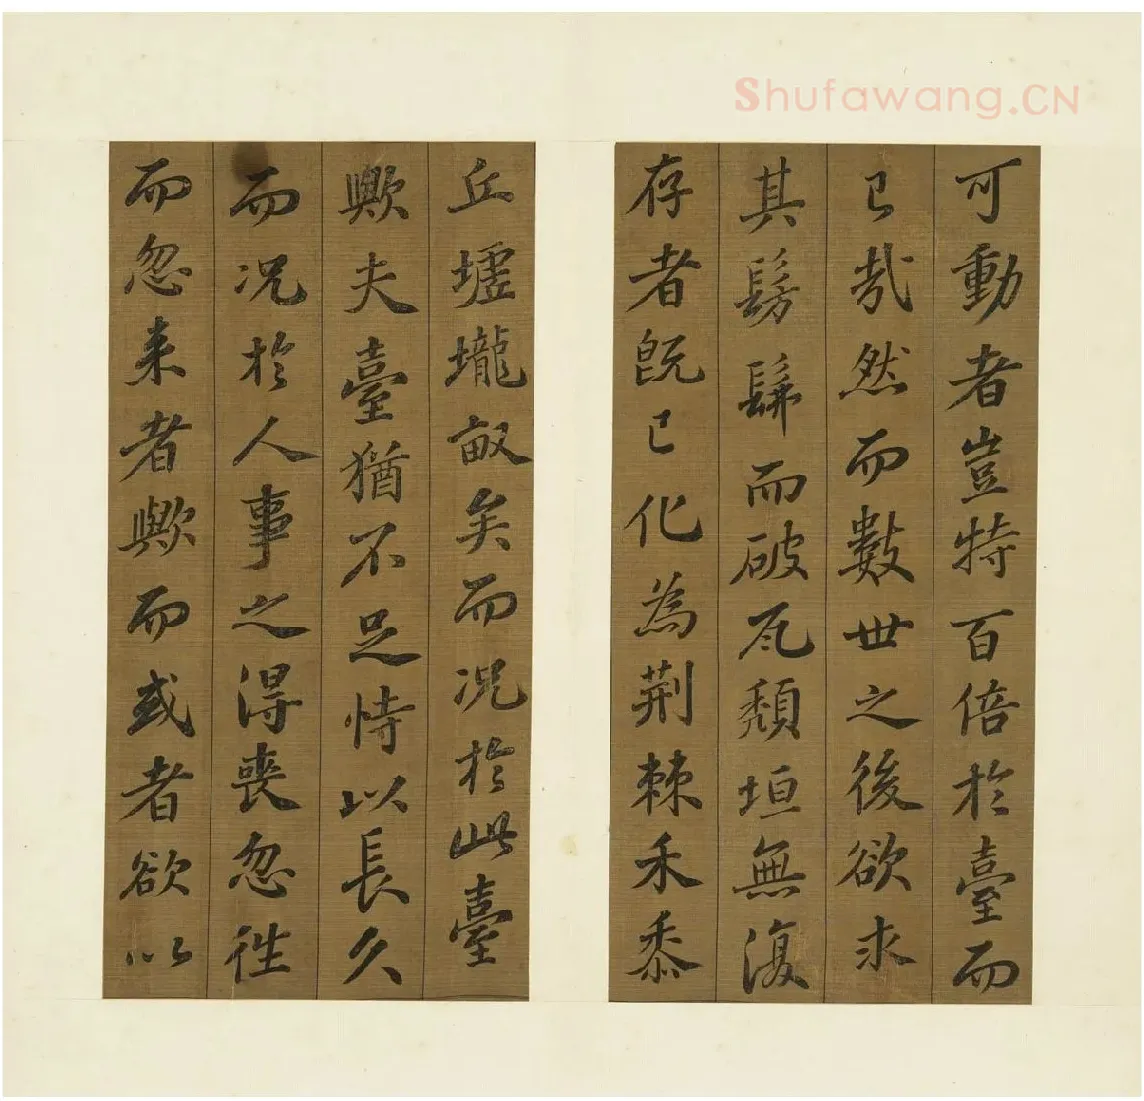 Shufawang.CN
可動者豈特百倍於臺而
已哉然而數世之後欲求
其髣髴而破瓦頹垣無復
存者既已化為荆棘禾黍
丘墟壠畝矣而况於此臺
歟夫臺猶不足恃以長久
而况於人事之得喪忽往
而忽来者歟而或者欲以